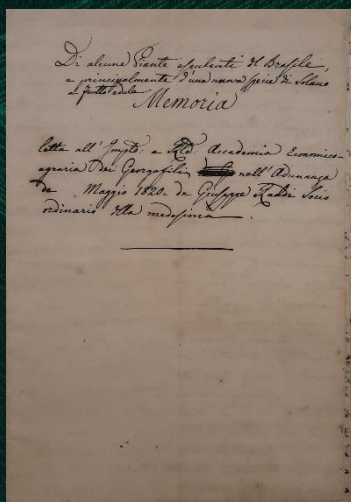 Di alcune Piante esculenti del Brasile,
e principalmente d'una nuova specie di Solano
a frutto edule
Memoria
letta all' e Accademia Economico
agraria dei Georgofili nell'Adunanza
de Maggio 1820. da Giuseppe Raddi Socio
ordinario della medesima.